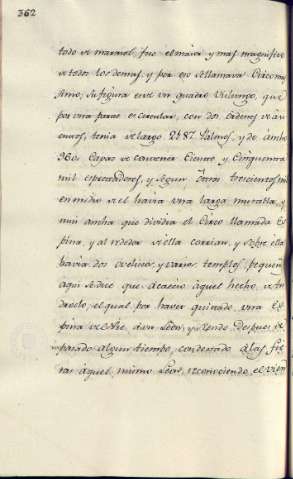 362
todo de marmol, fue el maior, y mas magnifico
de todos los demas, y por eso se llamava Circo ma-
simo, su figura era un quadro vislongo, que
por una parte es circular, con dos ordenes de ar-
cos, tenia de largo 2187 Palmos, y de ancho
960. Capaz de contener Ciento, y Cinquenta
mil espectadores, y segun otros trescientos mil
en medio de el havia una larga muralla, y
mui ancha que dividia el Circo llamada Es-
pina, y al rededor de ella corrian, y sobre ella
havia dos ovelicos, y varios templos pequeños
aqui se dice que acaecio aquel hecho, de An-
drocto, el qual por haver quitado una Es-
pina de el Pie, a un Leon, y siendo despues de
pasado algun tiempo, condenado a las fie-
ras aquel mismo Leon, reconociendo el